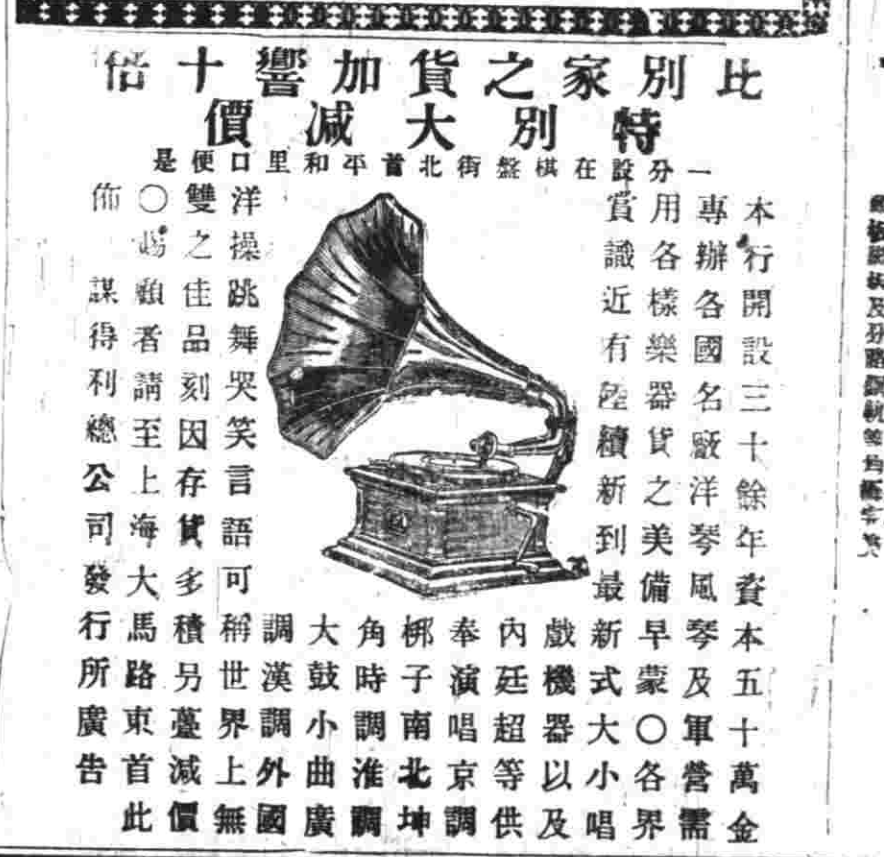 比別家之貨加響十倍
特別大減價
一分設在棋盤街北首平和里口便是
本行開設三十餘年資本五十萬金
專辦各國名廠洋琴風琴及軍營需
用各樣樂器貨之美備早蒙○各界
賞識近有陸續新到最新式大小唱
戲機器以及
內廷超等供
奉演唱京調
梆子南北坤
角時調淮調
大鼓小曲廣
調漢調外國
洋操跳舞哭笑言語可稱世界上無
雙之佳品刻因存貨多積另躉減價
○賜顧者請至上海大馬路東首此
佈　謀得利總公司發行所廣告